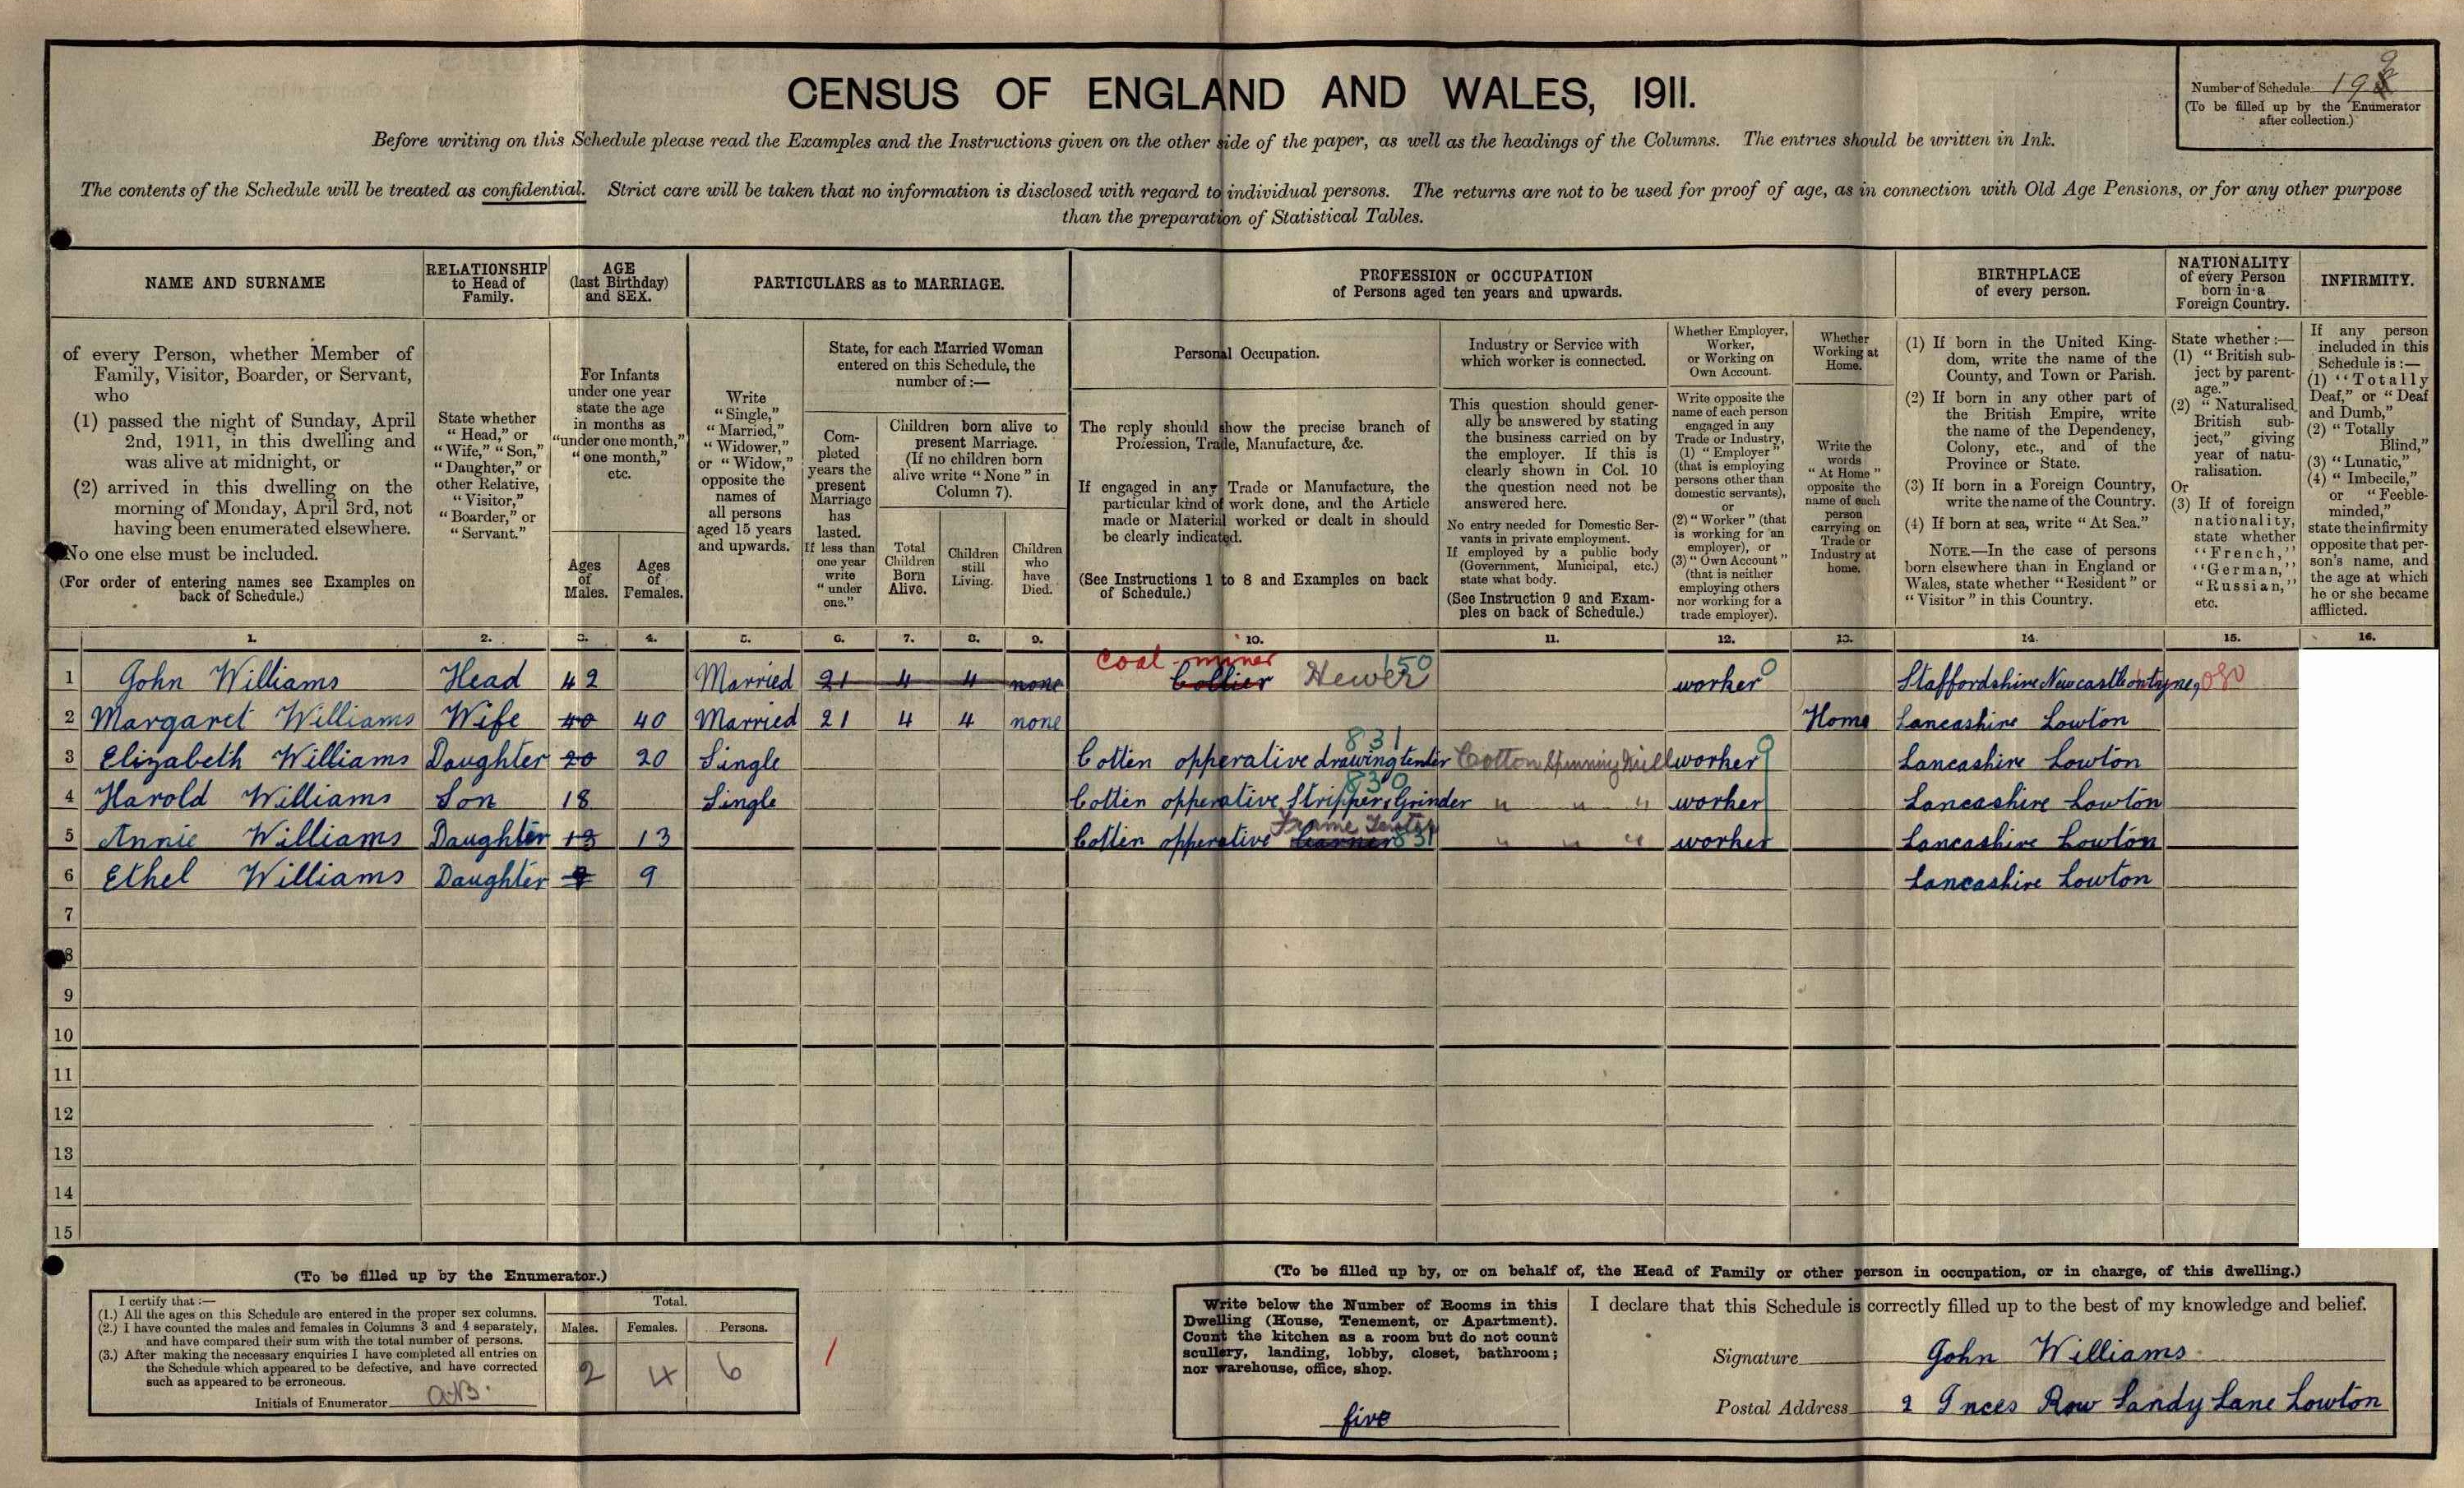 CENSUS OF ENGLAND AND WALES, 1911.
Number of Schedule 19
(To be filled up by the Enumerator
after collection.)
Before writing on this Schedule please read the Examples and the Instructions given on the other side of the paper, as well as the headings of the Columns. The entries should be written in Ink.
The contents of the Schedule will be treated as confidential. Strict care will be taken that no information is disclosed with regard to individual persons. The returns are not to be used for proof of age, as in connection with Old Age Pensions, or for any other purpose
than the preparation of Statistical Tables.
NAME AND SURNAME
of every Person, whether Member of
Family, Visitor, Boarder, or Servant,
who
(1) passed the night of Sunday, April
2nd, 1911, in this dwelling and
was alive at midnight, or
(2) arrived in this dwelling on the
morning of Monday, April 3rd, not
having been enumerated elsewhere.
No one else must be included.
(For order of entering names see Examples on
back of Schedule.)
RELATIONSHIP
to Head of
Family.
State whether
"Head," or
"Wife," "Son,"
"Daughter," or
other Relative,
"Visitor,"
"Boarder," or
"Servant."
AGE
(last Birthday)
and SEX.
For Infants
under one year
state the age
in months as
"under one month,"
"one month,"
etc.
Ages
of
Males.
Ages
of
Females.
PARTICULARS as to MARRIAGE.
Write
"Single,"
"Married,"
"Widower,"
or "Widow,"
opposite the
names of
all persons
aged 15 years
and upwards.
State, for each Married Woman
entered on this Schedule, the
number of:—
Com-
pleted
years the
present
Marriage
has
lasted.
If less than
one year
write
"under
one."
Children born alive to
present Marriage.
(If no children born
alive write "None" in
Column 7).
Total
Children
Born
Alive.
Children
still
Living.
Children
who
have
Died.
PROFESSION or OCCUPATION
of Persons aged ten years and upwards.
Personal Occupation.
The reply should show the precise branch of
Profession, Trade, Manufacture, &c.
If engaged in any Trade or Manufacture, the
particular kind of work done, and the Article
made or Material worked or dealt in should
be clearly indicated.
(See Instructions 1 to 8 and Examples on back
of Schedule.)
Industry or Service with
which worker is connected.
This question should gener-
ally be answered by stating
the business carried on by
the employer. If this is
clearly shown in Col. 10
the question need not be
answered here.
No entry needed for Domestic Ser-
vants in private employment.
If employed by a public body
(Government, Municipal, etc.)
state what body.
(See Instruction 9 and Exam-
ples on back of Schedule.)
Whether Employer,
Worker,
or Working on
Own Account.
Write opposite the
name of each person
engaged in any
Trade or Industry,
(1) "Employer"
(that is employing
persons other than
domestic servants),
or
(2) "Worker" (that
is working for an
employer), or
(3) "Own Account"
(that is neither
employing others
nor working for a
trade employer).
Whether
Working at
Home.
Write the
words
"At Home"
opposite the
name of each
person
carrying on
Trade or
Industry at
home.
BIRTHPLACE
of every person.
(1) If born in the United King-
dom, write the name of the
County, and Town or Parish.
(2) If born in any other part of
the British Empire, write
the name of the Dependency,
Colony, etc., and of the
Province or State.
(3) If born in a Foreign Country,
write the name of the Country.
(4) If born at sea, write "At Sea."
NOTE.—In the case of persons
born elsewhere than in England or
Wales, state whether "Resident" or
"Visitor" in this Country.
NATIONALITY
of every Person
born in a
Foreign Country.
State whether:—
(1) "British sub-
ject by parent-
age."
(2) "Naturalised
British sub-
ject," giving
year of natu-
ralisation.
Or
(3) If of foreign
nationality,
state whether
"French,"
"German,"
"Russian,"
etc.
INFIRMITY.
If any person
included in this
Schedule is:—
(1) "Totally
Deaf," or "Deaf
and Dumb,"
(2) "Totally
Blind,"
(3) "Lunatic,"
(4) "Imbecile,"
or "Feeble-
minded,"
state the infirmity
opposite that per-
son's name, and
the age at which
he or she became
afflicted.
1. 2. 3. 4. 5. 6. 7. 8. 9. 10. 11. 12. 13. 14. 15. 16.
coal-miner 150
1 John Williams Head 42 Married 21 4 4 none Collier Hewer worker 0 Staffordshire Newcastle on tyne, 080
2 Margaret Williams Wife 40 40 Married 21 4 4 none Home Lancashire Lowton
831
3 Elizabeth Williams Daughter 20 20 Single Cotten opperative drawing tenter Cotton Spinning Mill worker Lancashire Lowton
830
4 Harold Williams Son 18 Single Cotten opperative Stripper & Grinder " " " worker Lancashire Lowton
Frame Tenter
5 Annie Williams Daughter 13 13 Cotten opperative Learner 831 " " " worker Lancashire Lowton
6 Ethel Williams Daughter 9 9 Lancashire Lowton
7
8
9
10
11
12
13
14
15
(To be filled up by the Enumerator.)
I certify that:—
(1.) All the ages on this Schedule are entered in the proper sex columns.
(2.) I have counted the males and females in Columns 3 and 4 separately,
and have compared their sum with the total number of persons.
(3.) After making the necessary enquiries I have completed all entries on
the Schedule which appeared to be defective, and have corrected
such as appeared to be erroneous.
Initials of Enumerator A.B.
Total.
Males. Females. Persons.
2 4 6
1
(To be filled up by, or on behalf of, the Head of Family or other person in occupation, or in charge, of this dwelling.)
Write below the Number of Rooms in this
Dwelling (House, Tenement, or Apartment).
Count the kitchen as a room but do not count
scullery, landing, lobby, closet, bathroom;
nor warehouse, office, shop.
five
I declare that this Schedule is correctly filled up to the best of my knowledge and belief.
Signature John Williams
Postal Address 2 Inces Row Sandy Lane Lowton